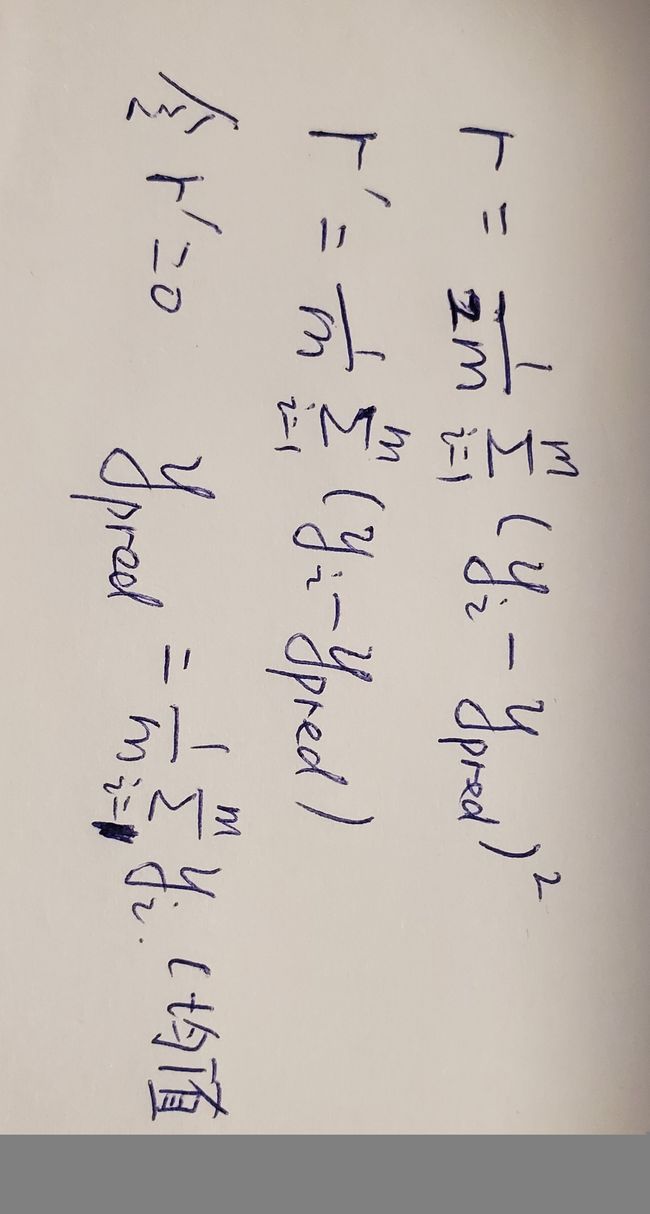 r = 1/2m Σ_{i=1}^{m} (y_i - y_pred)²
r' = 1/m Σ_{i=1}^{m} (y_i - y_pred)
令 r' = 0 y_pred = 1/m Σ_{i=1}^{m} y_i. (均值